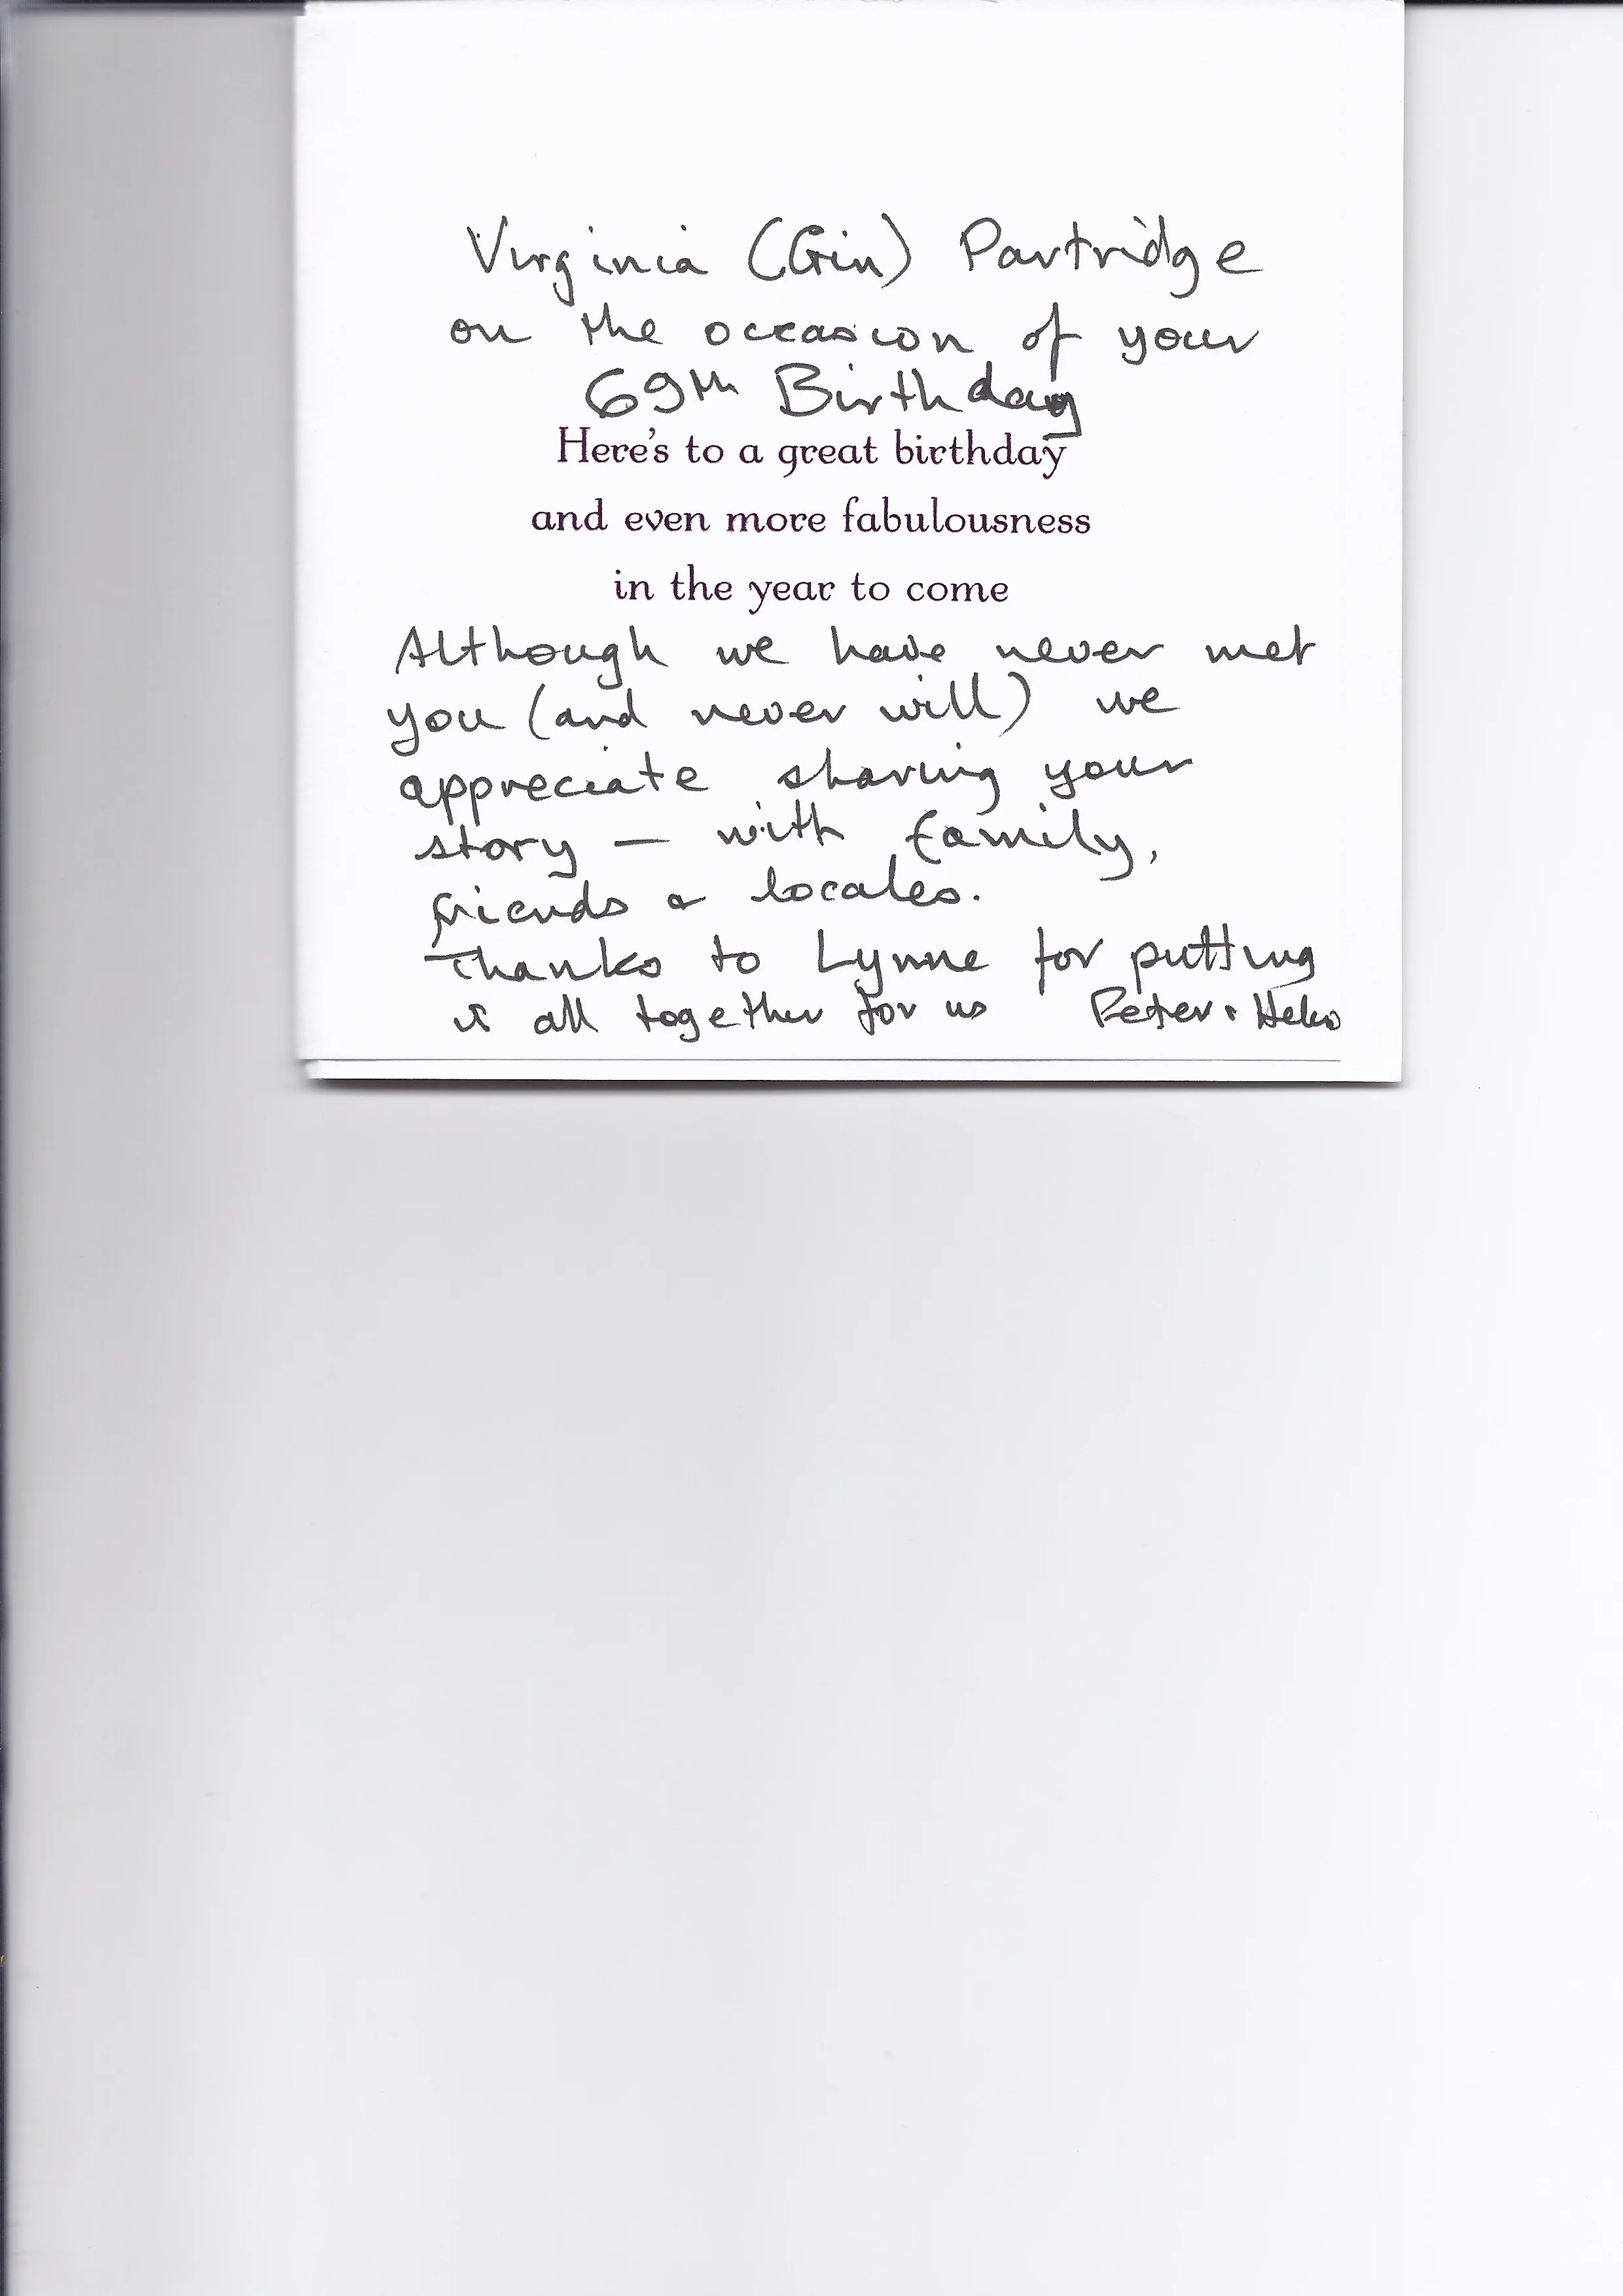 Virginia (Gin) Partridge
on the occasion of your
69th Birthday
Here's to a great birthday
and even more fabulousness
in the year to come
Although we have never met
you (and never will) we
appreciate sharing your
story — with family,
friends & locales.
Thanks to Lynne for putting
it all together for us Peter &